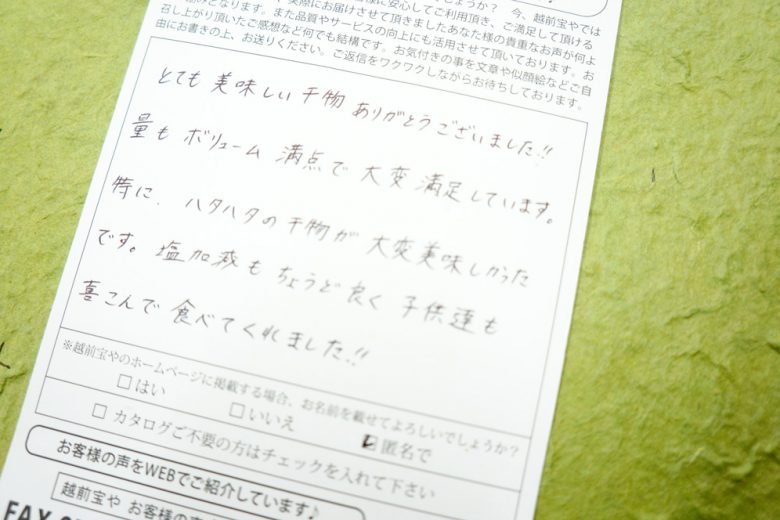 様に安心してご利用頂き、ご満足して頂ける
実際にお届けさせて頂きましたあなた様の貴重なお声が何よ
ります。また品質やサービスの向上にも活用させて頂いております。お
召し上がり頂いたご感想など何でも結構です。お気付きの事を文章や似顔絵などご自
由にお書きの上、お送りください。ご返信をワクワクしながらお待ちしております。
とても 美味しい 干物 ありがとうございました!!
量も ボリューム 満点で 大変 満足しています。
特に、ハタハタの 干物が 大変美味しかった
です。塩加減も ちょうど良く 子供達も
喜こんで 食べてくれました!!
※越前宝やのホームページに掲載する場合、お名前を載せてよろしいでしょうか?
□はい □いいえ 匿名で
□ カタログご不要の方はチェックを入れて下さい
お客様の声をWEBでご紹介しています♪
越前宝や お客様の声
FAX